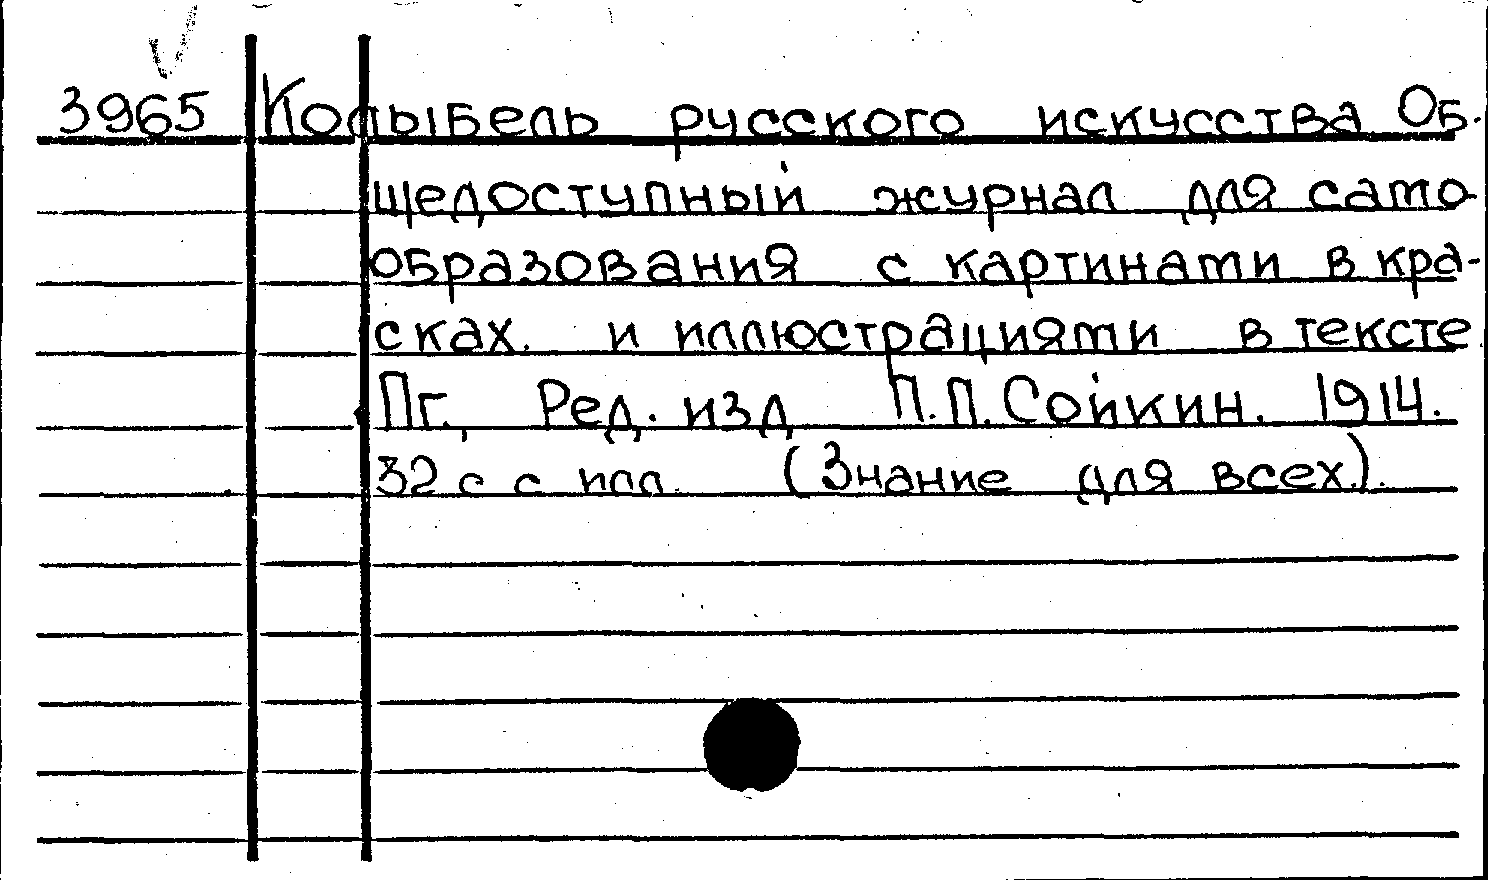 3965 Колыбель русского искусства Об-
щедоступный журнал для само
образования с картинами в кра-
сках. и иллюстрациями в тексте
Пг., Ред. изд П.П.Сойкин. 1914.
32 с с илл. (Знание для всех).